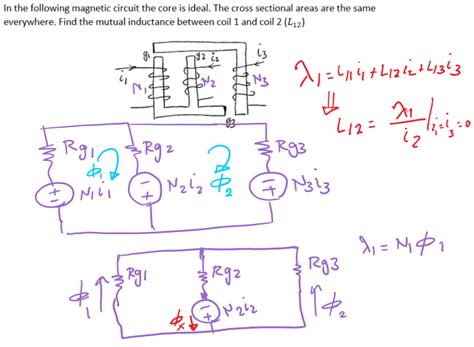 In the following magnetic circuit the core is ideal. The cross sectional areas are the same
everywhere. Find the mutual inductance between coil 1 and coil 2 (L12)
g1 g2 i2 i3
i1 N1 N2 N3
g3
λ1 = L11i1 + L12i2 + L13i3
⇓
L12 = λ1/i2 | i1=i3=0
Rg1 Rg2 Rg3
Φ1 Φ2
N1i1 N2i2 N3i3
λ1 = N1Φ1
Rg1 Rg2 Rg3
Φ1 Φx N2i2 Φ2